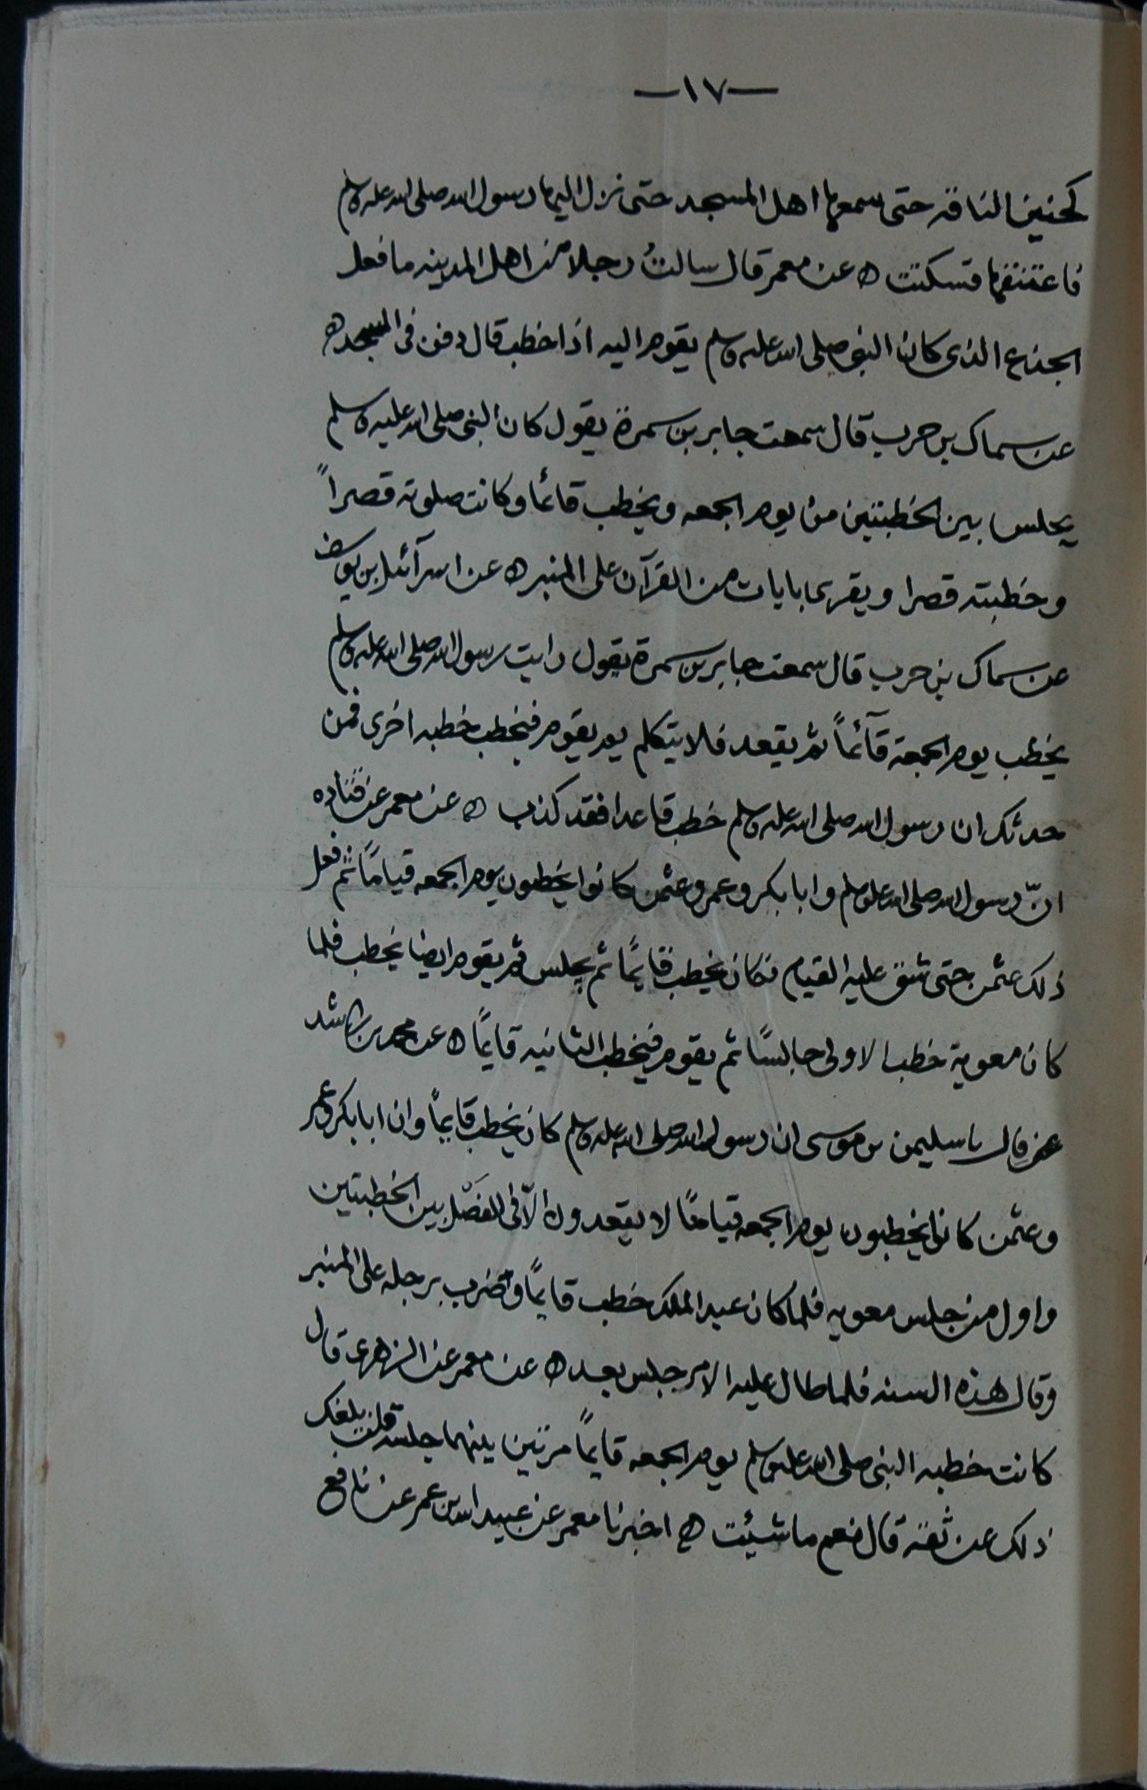 —١٧—
كحنين الناقه حتى سمعها اهل المسجد حتى نزل اليها رسول الله صلى الله عليه وسلم
فاعتنقها فسكنت ه عن معمر قال سالتُ رجلا من اهل المدينه ما فعل
الجذع الذى كان النبى صلى الله عليه وسلم يقوم اليه اذا خطب قال دفن فى المسجد ه
عن سماك بن حرب قال سمعت جابر بن سمرة يقول كان النبى صلى الله عليه وسلم
يجلس بين الخطبتين من يوم الجمعه ويخطب قائما وكانت صلوته قصراً
وخطبته قصرا ويقر بايات من القرآن على المنبر ه عن اسرآئيل بن يونس
عن سماك بن حرب قال سمعت جابر بن سمرة يقول رايت رسول الله صلى الله عليه وسلم
يخطب يوم الجمعة قآئماً ثم يقعد فلا يتكلم ثم يقوم فيخطب خطبه اخرى فمن
حدثك ان رسول الله صلى الله عليه وسلم خطب قاعدا فقد كذب ه عن معمر عن قتاده
انّ رسول الله صلى الله عليه وسلم وابا بكر وعمر وعثمن كانوا يخطبون يوم الجمعه قياماً ثم فعل
ذلك عثمن حتى شق عليه القيام فكان يخطب قايمًا ثم يجلس ثم يقوم ايضا يخطب فلما
كان معوية خطب الاولى جالسًا ثم يقوم فيخطب الثانيه قايمًا ه عن محمد بن راشد
قال سليمن بن موسى ان رسول الله صلى الله عليه وسلم كان يخطب قايمًا وان ابا بكر وعمر
وعثمن كانوا يخطبون يوم الجمعه قيامًا لا يقعدون الّا فى الفَصْل بين الخطبتين
واول من جلس معويه فلما كان عبد الملك خطب قايمًا وضرب برجله على المنبر
وقال هذه السنه فلما طال عليه الامر جلس بعد ه عن معمر عن الزهرى قال
كانت خطبه النبى صلى الله عليه وسلم يوم الجمعه قايماً مرتين بينهما جلسه قلت بلغك
ذلك عن ثقة قال نعم ما شيئت ه اخبرنا معمر عن عبيد الله بن عمر عن نافع